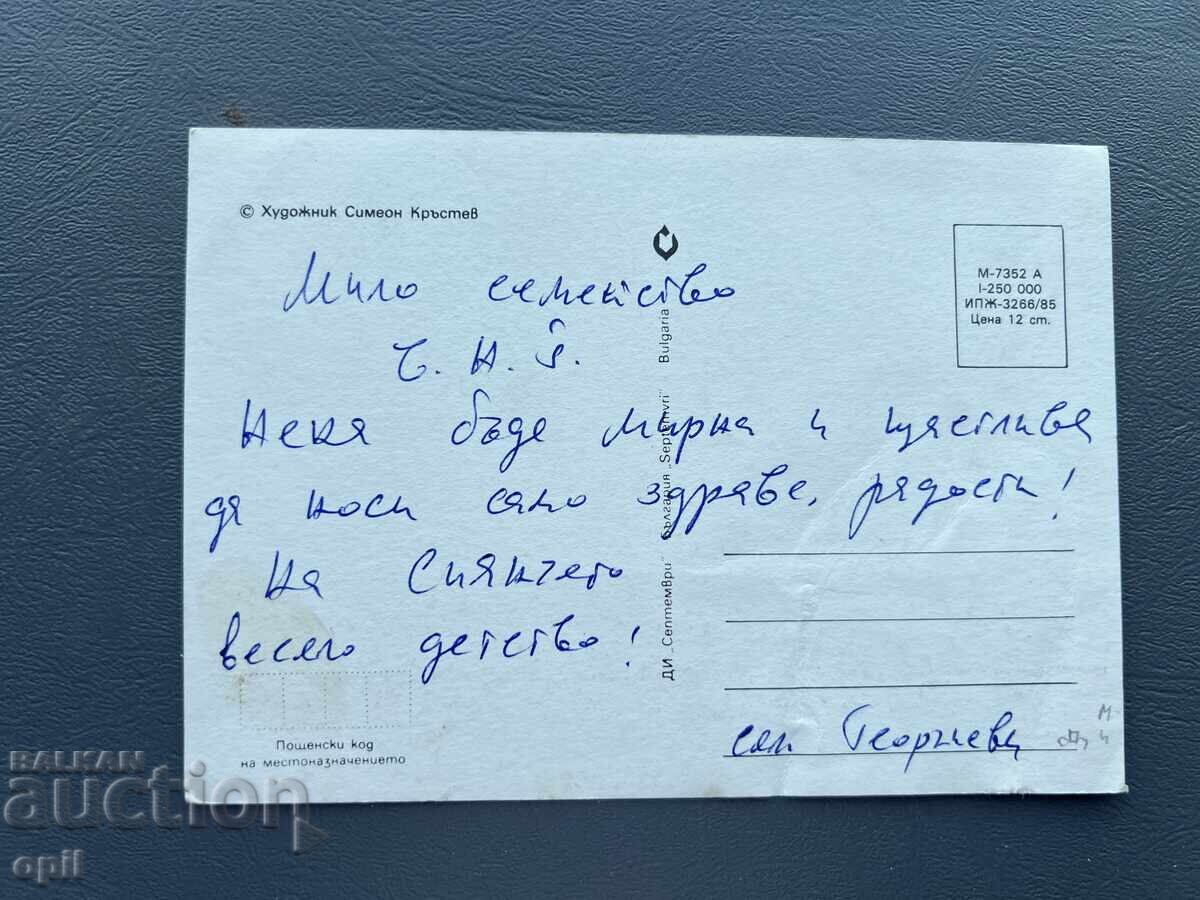 © Художник Симеон Кръстев
М-7352 А
I-250 000
ИПЖ-3266/85
Цена 12 ст.
Мило семейство
Ч. Н. Г.
Нека бъде мирна и щастлива
да носи само здраве, радости!
На Сиянчето
весело детство!
сем Георгиеви
ДИ „Септември" България „Septemvri" Bulgaria
Пощенски код
на местоназначението
BALKAN
auction
opil